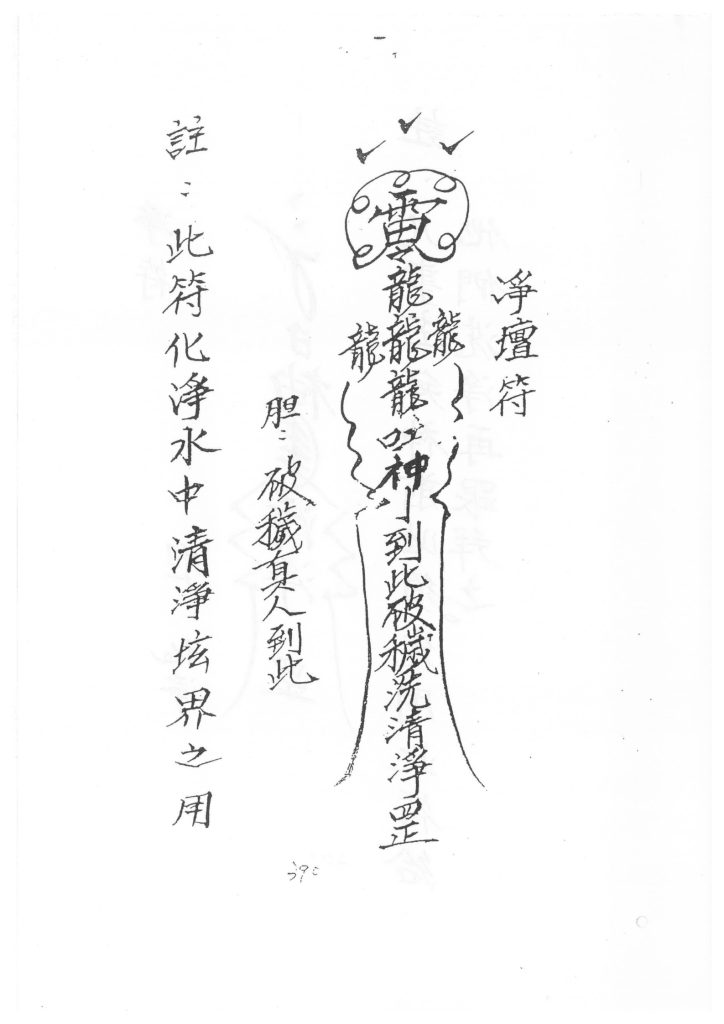 淨壇符
雷
龍
龍龍龍
龍
神
到此破穢洗清淨罡
胆:破穢真人到此
註:此符化淨水中清淨坛界之用
390